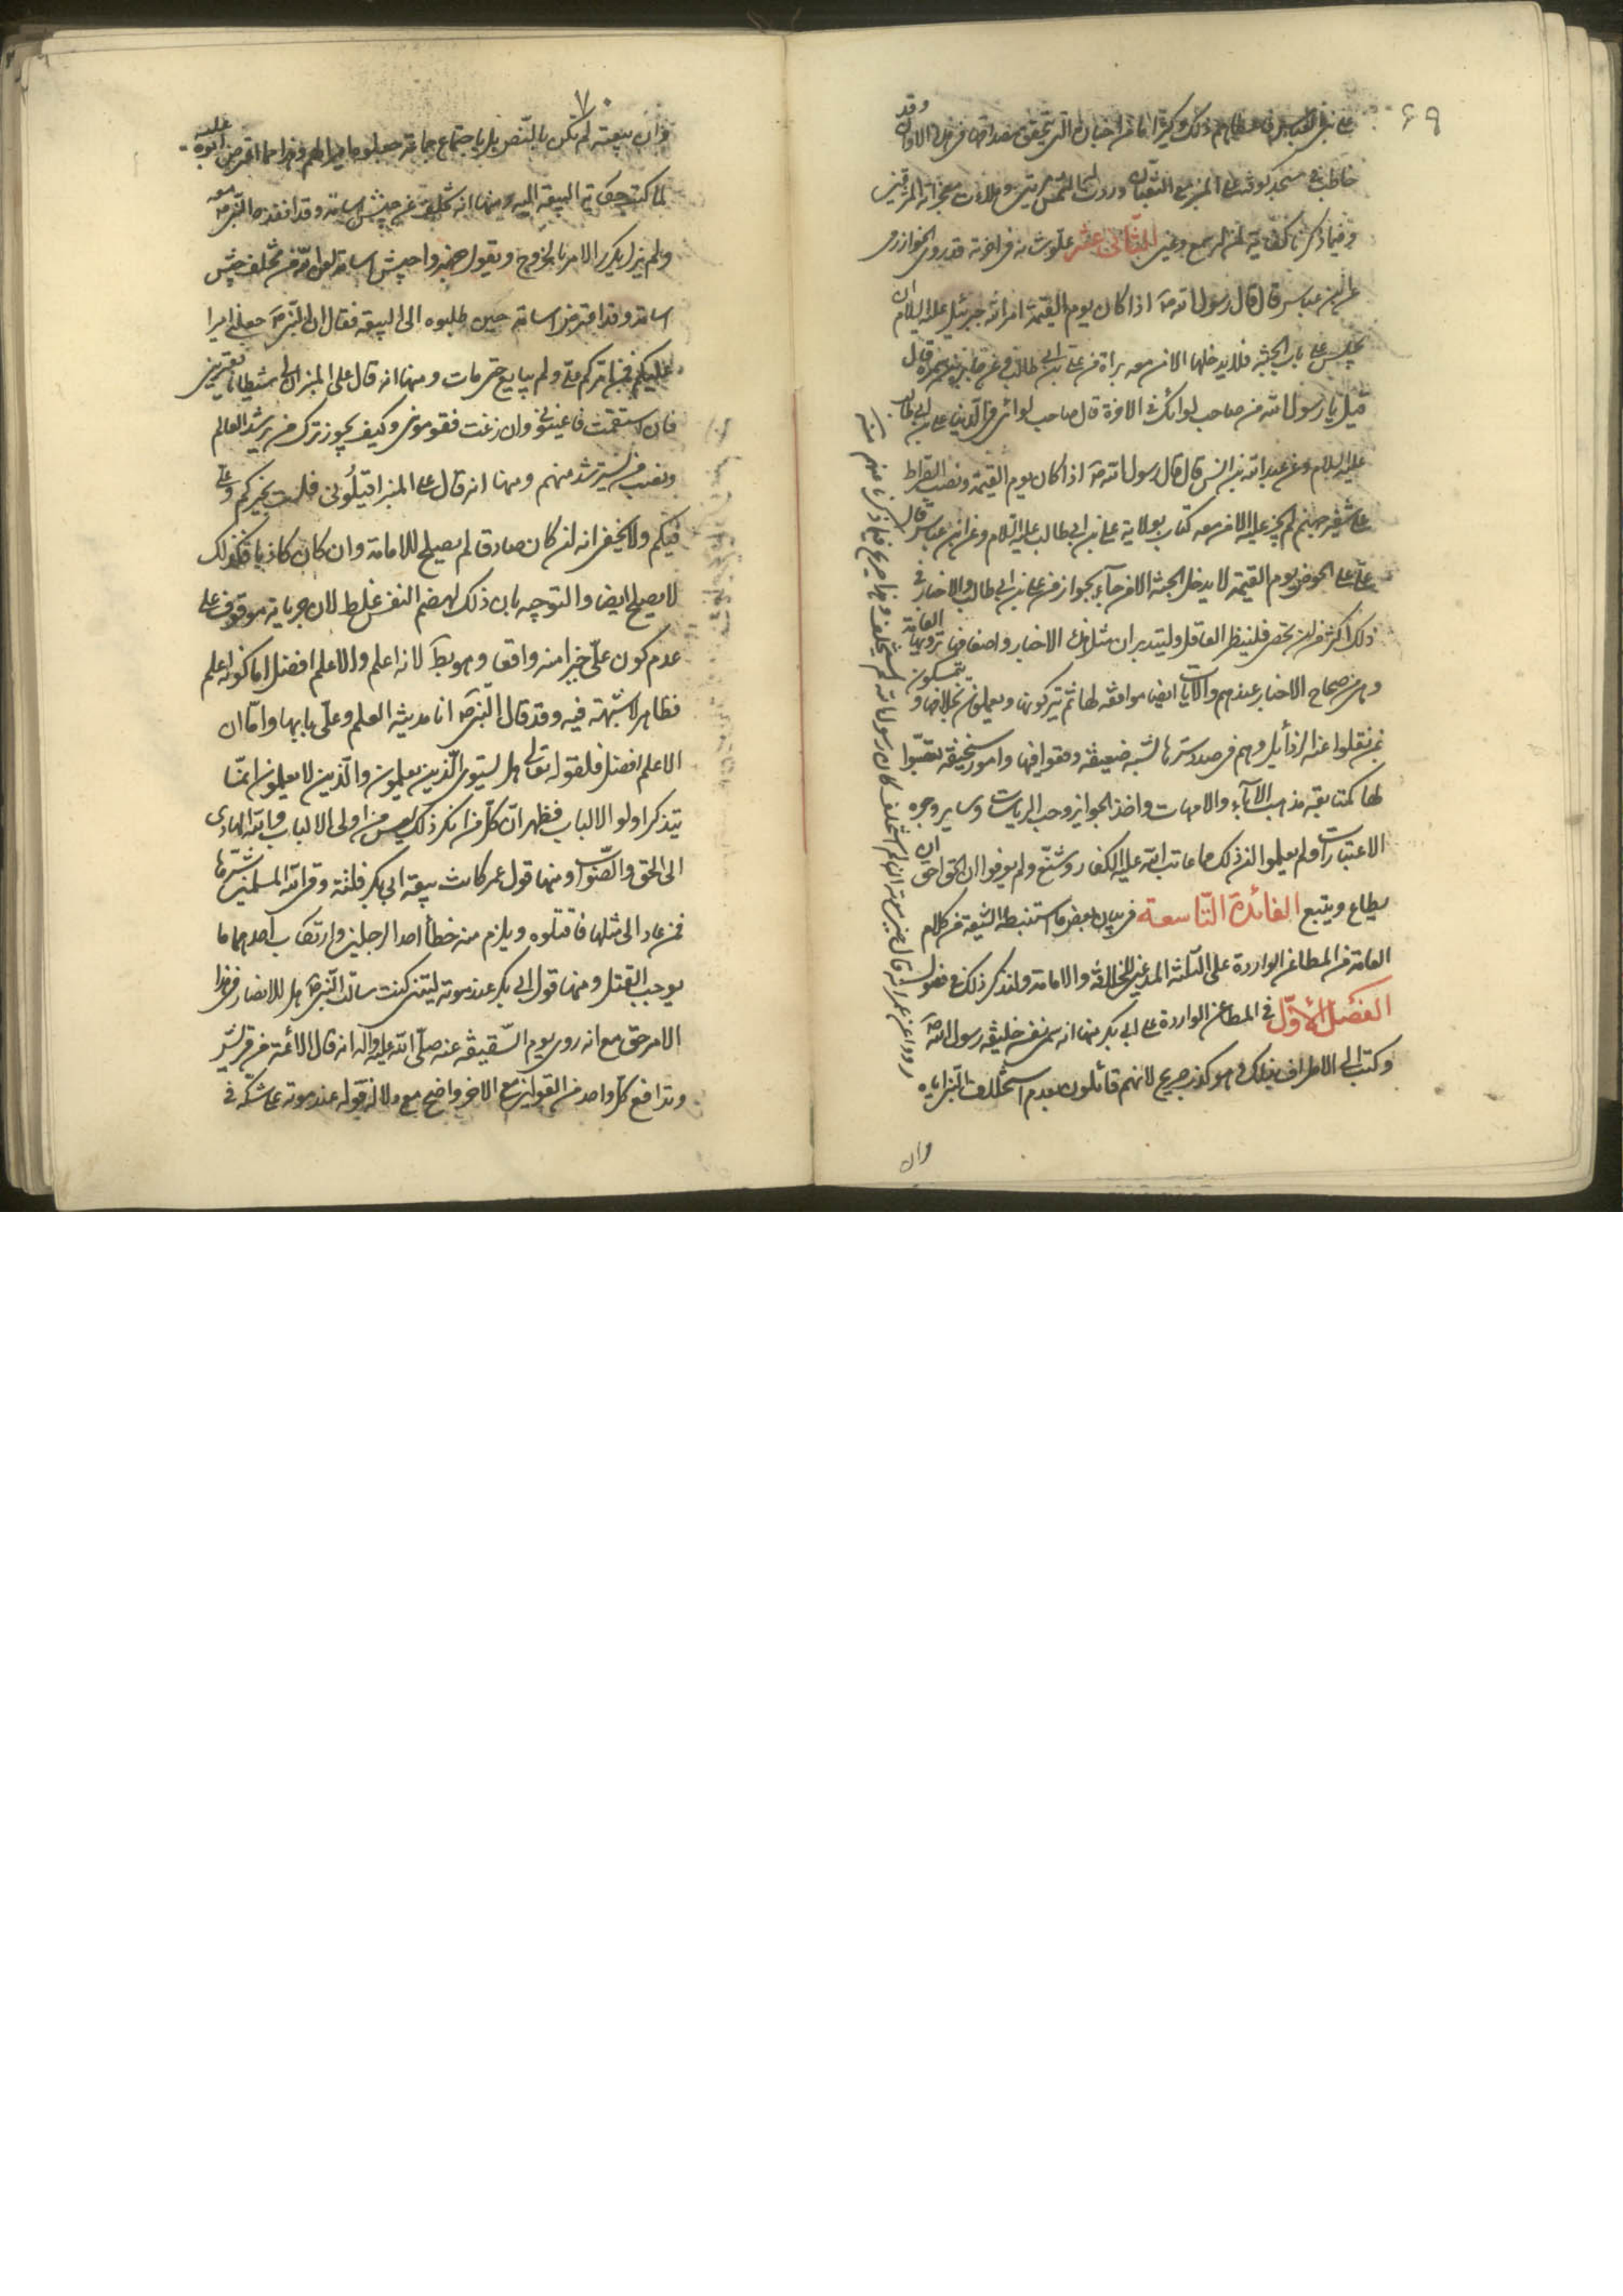 ۶۹
خاطب في مسجد كوفة على المنبر مع الثعبان وردت له الشمس مرتين
وفيما ذكرنا كفاية لمن له سمع وعين الثانی عشر علو شانه في الاخرة قد روى الخوارزمي
عن ابن عباس قال قال رسول الله صۤ اذا كان يوم القيمة امر الله جبرئيل عليه السلام ان
يجلس على باب الجنة فلا يدخلها الا من معه براة من علي بن ابي طالب وعن جابر بن سمرة قال
قيل يا رسول الله من صاحب لوائك في الاخرة قال صاحب لوائي في الدنيا علي بن ابي طالب
عليه السلام وعن عبد الله بن انس قال قال رسول الله صۤ اذا كان يوم القيمة ونصب الصراط
على شفير جهنم لم يجز عليه الا من معه كتاب بولاية علي بن ابي طالب عليه السلام وعن ابن عباس قال
علي على الحوض يوم القيمة لا يدخل الجنة الا من جاء بجواز من علي بن ابي طالب والاخبار في
ذلك اكثر من ان يحصى فلينظر العاقل وليتدبر ان مثل هذه الاخبار واضعافها ترويها العامة
وهي من صحاح الاخبار عندهم والايات ايضا موافقة لها ثم يتركونها ويعملون بخلافها و يتمسكون
بمن نقلوا عنه الرذائل وهم في صدد سترها لشبه ضعيفة وقعوا فيها وامور سخيفة تعصبوا
لها كمتابعة مذهب الاباء والامهات واخذ الجوايز وحب الرياسات وساير وجوه
الاعتبارات ولم يعلموا ان ذلك مما عاتب الله عليه الكفار وشنع ولم يعرفوا ان الحق احق ان
يطاع ويتبع الفائدة التاسعة في بيان بعض ما استنبطه الشيعة من كلام
العامة من المطاعن الواردة على الثلثة المدعين للخلافة والامامة ولنذكر ذلك في فصول
الفصل الاول في المطاعن الواردة على ابي بكر منها انه سمى نفسه خليفة رسول الله صۤ
وكتب الى الاطراف بذلك وهو كذب صريح لانهم قائلون بعدم استخلاف النبي اياه
وان
۷۰
وان بيعته لم تكن بالنص بل باجتماع جماعة جعلوه اميرا لهم وهذا مما اعترض عليه ابوه
لما كتب حكاية البيعة اليه ومنها انه تخلف عن جيش اسامة وقد انفذه النبي صۤ معه
ولم يزل يكرر الامر بالخروج ويقول جهزوا جيش اسامة لعن الله من تخلف عن جيش
اسامة وقد اعترض اسامة حين طلبوه الى البيعة فقال ان النبي صۤ جعلني اميرا
عليكم فمن امركم علي ولم يبايع حتى مات ومنها انه قال على المنبر ان لي شيطانا يعتريني
فان استقمت فاعينوني وان زغت فقوموني وكيف يجوز ترك من يرشد العالم
ونصب من يسترشد منهم ومنها انه قال على المنبر اقيلوني فلست بخيركم وعلي
فيكم ولا يخفى انه لو كان صادقا لم يصلح للامامة وان كان كاذبا فكذلك
لا يصلح ايضا والتوجيه بان ذلك لهضم النفس غلط لان جريانه موقوف على
عدم كون علي خيرا منه واقعا وهو بط لانه اعلم والاعلم افضل اما كونه اعلم
فظاهر لا شبهة فيه وقد قال النبي صۤ انا مدينة العلم وعلي بابها واما ان
الاعلم افضل فلقوله تعالى هل يستوي الذين يعلمون والذين لا يعلمون انما
يتذكر اولو الالباب فظهر ان كل من انكر ذلك ليس من اولى الالباب والله الهادى
الى الحق والصواب ومنها قول عمر كانت بيعة ابي بكر فلتة وقى الله المسلمين شرها
فمن عاد الى مثلها فاقتلوه ويلزم منه خطأ احد الرجلين وارتكاب احدهما ما
يوجب القتل ومنها قول ابي بكر عند موته ليتني كنت سالت النبي صۤ هل للانصار في هذا
الامر حق مع انه روى يوم السقيفة عنه صلى الله عليه واله انه قال الائمة من قريش
وتدافع كل واحد من القولين مع الاخر واضح مع دلالة قوله عند موته على شكه في